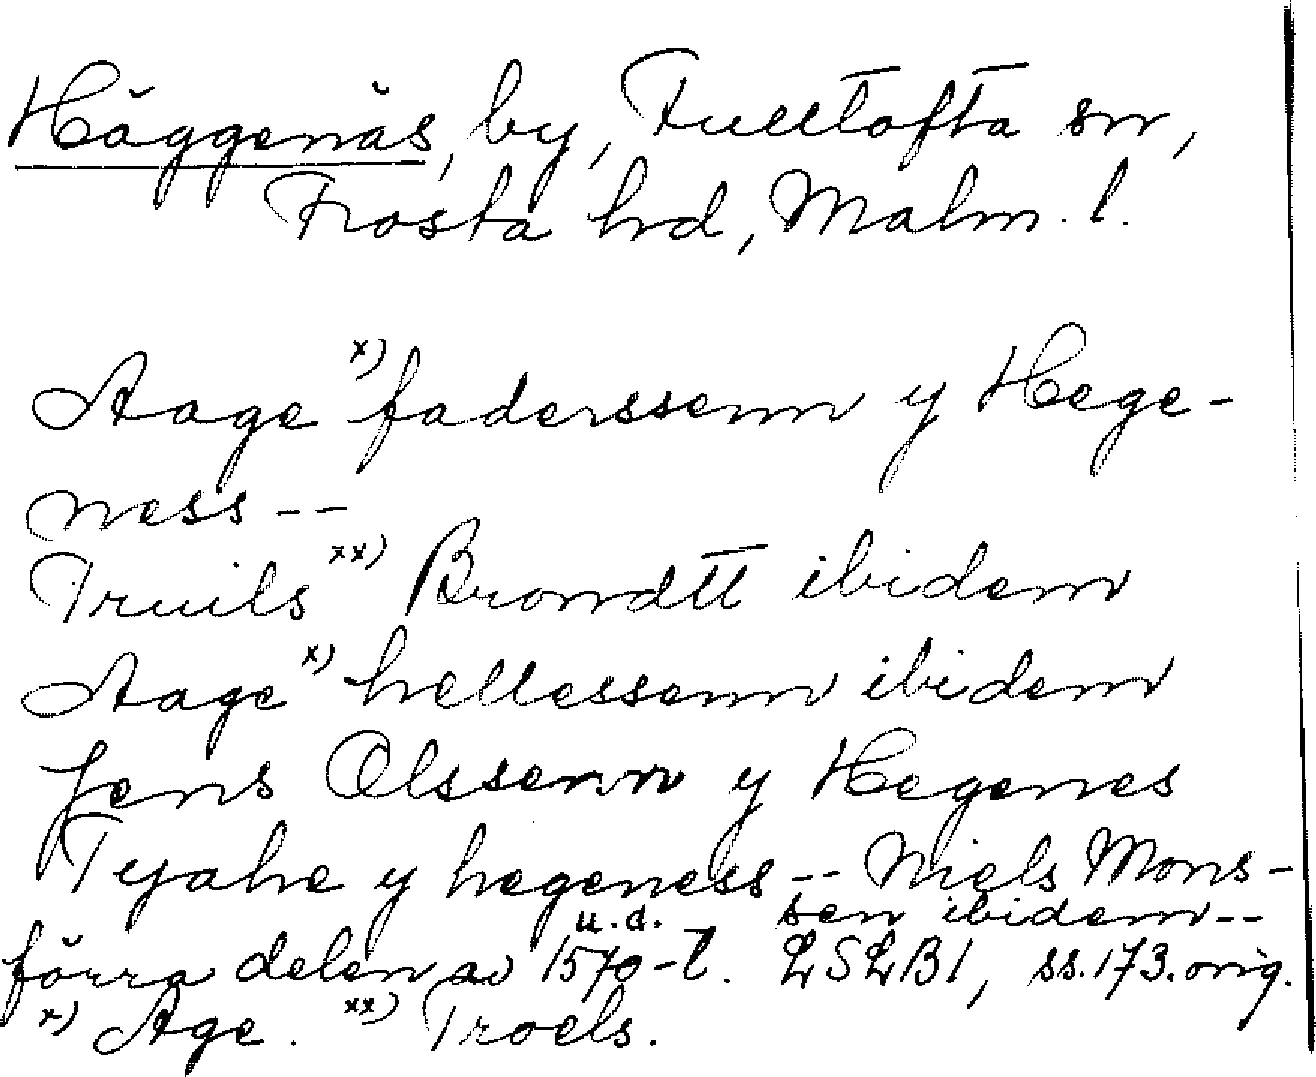 Häggenäs, by, Fulltofta sn,
Frosta hd, Malm. l.
Aage x) faderssenn y Hege-
ness --
Truils xx) Brondtt ibidem
Aage x) hellessenn ibidem
Jens Olssenn y Hegenes
Tyahe y hegeness -- Niels Mons-
sen ibidem --
u.d.
förra delen av 1570-t. LSLB1, ss. 173. orig.
x) Age. xx) Troels.